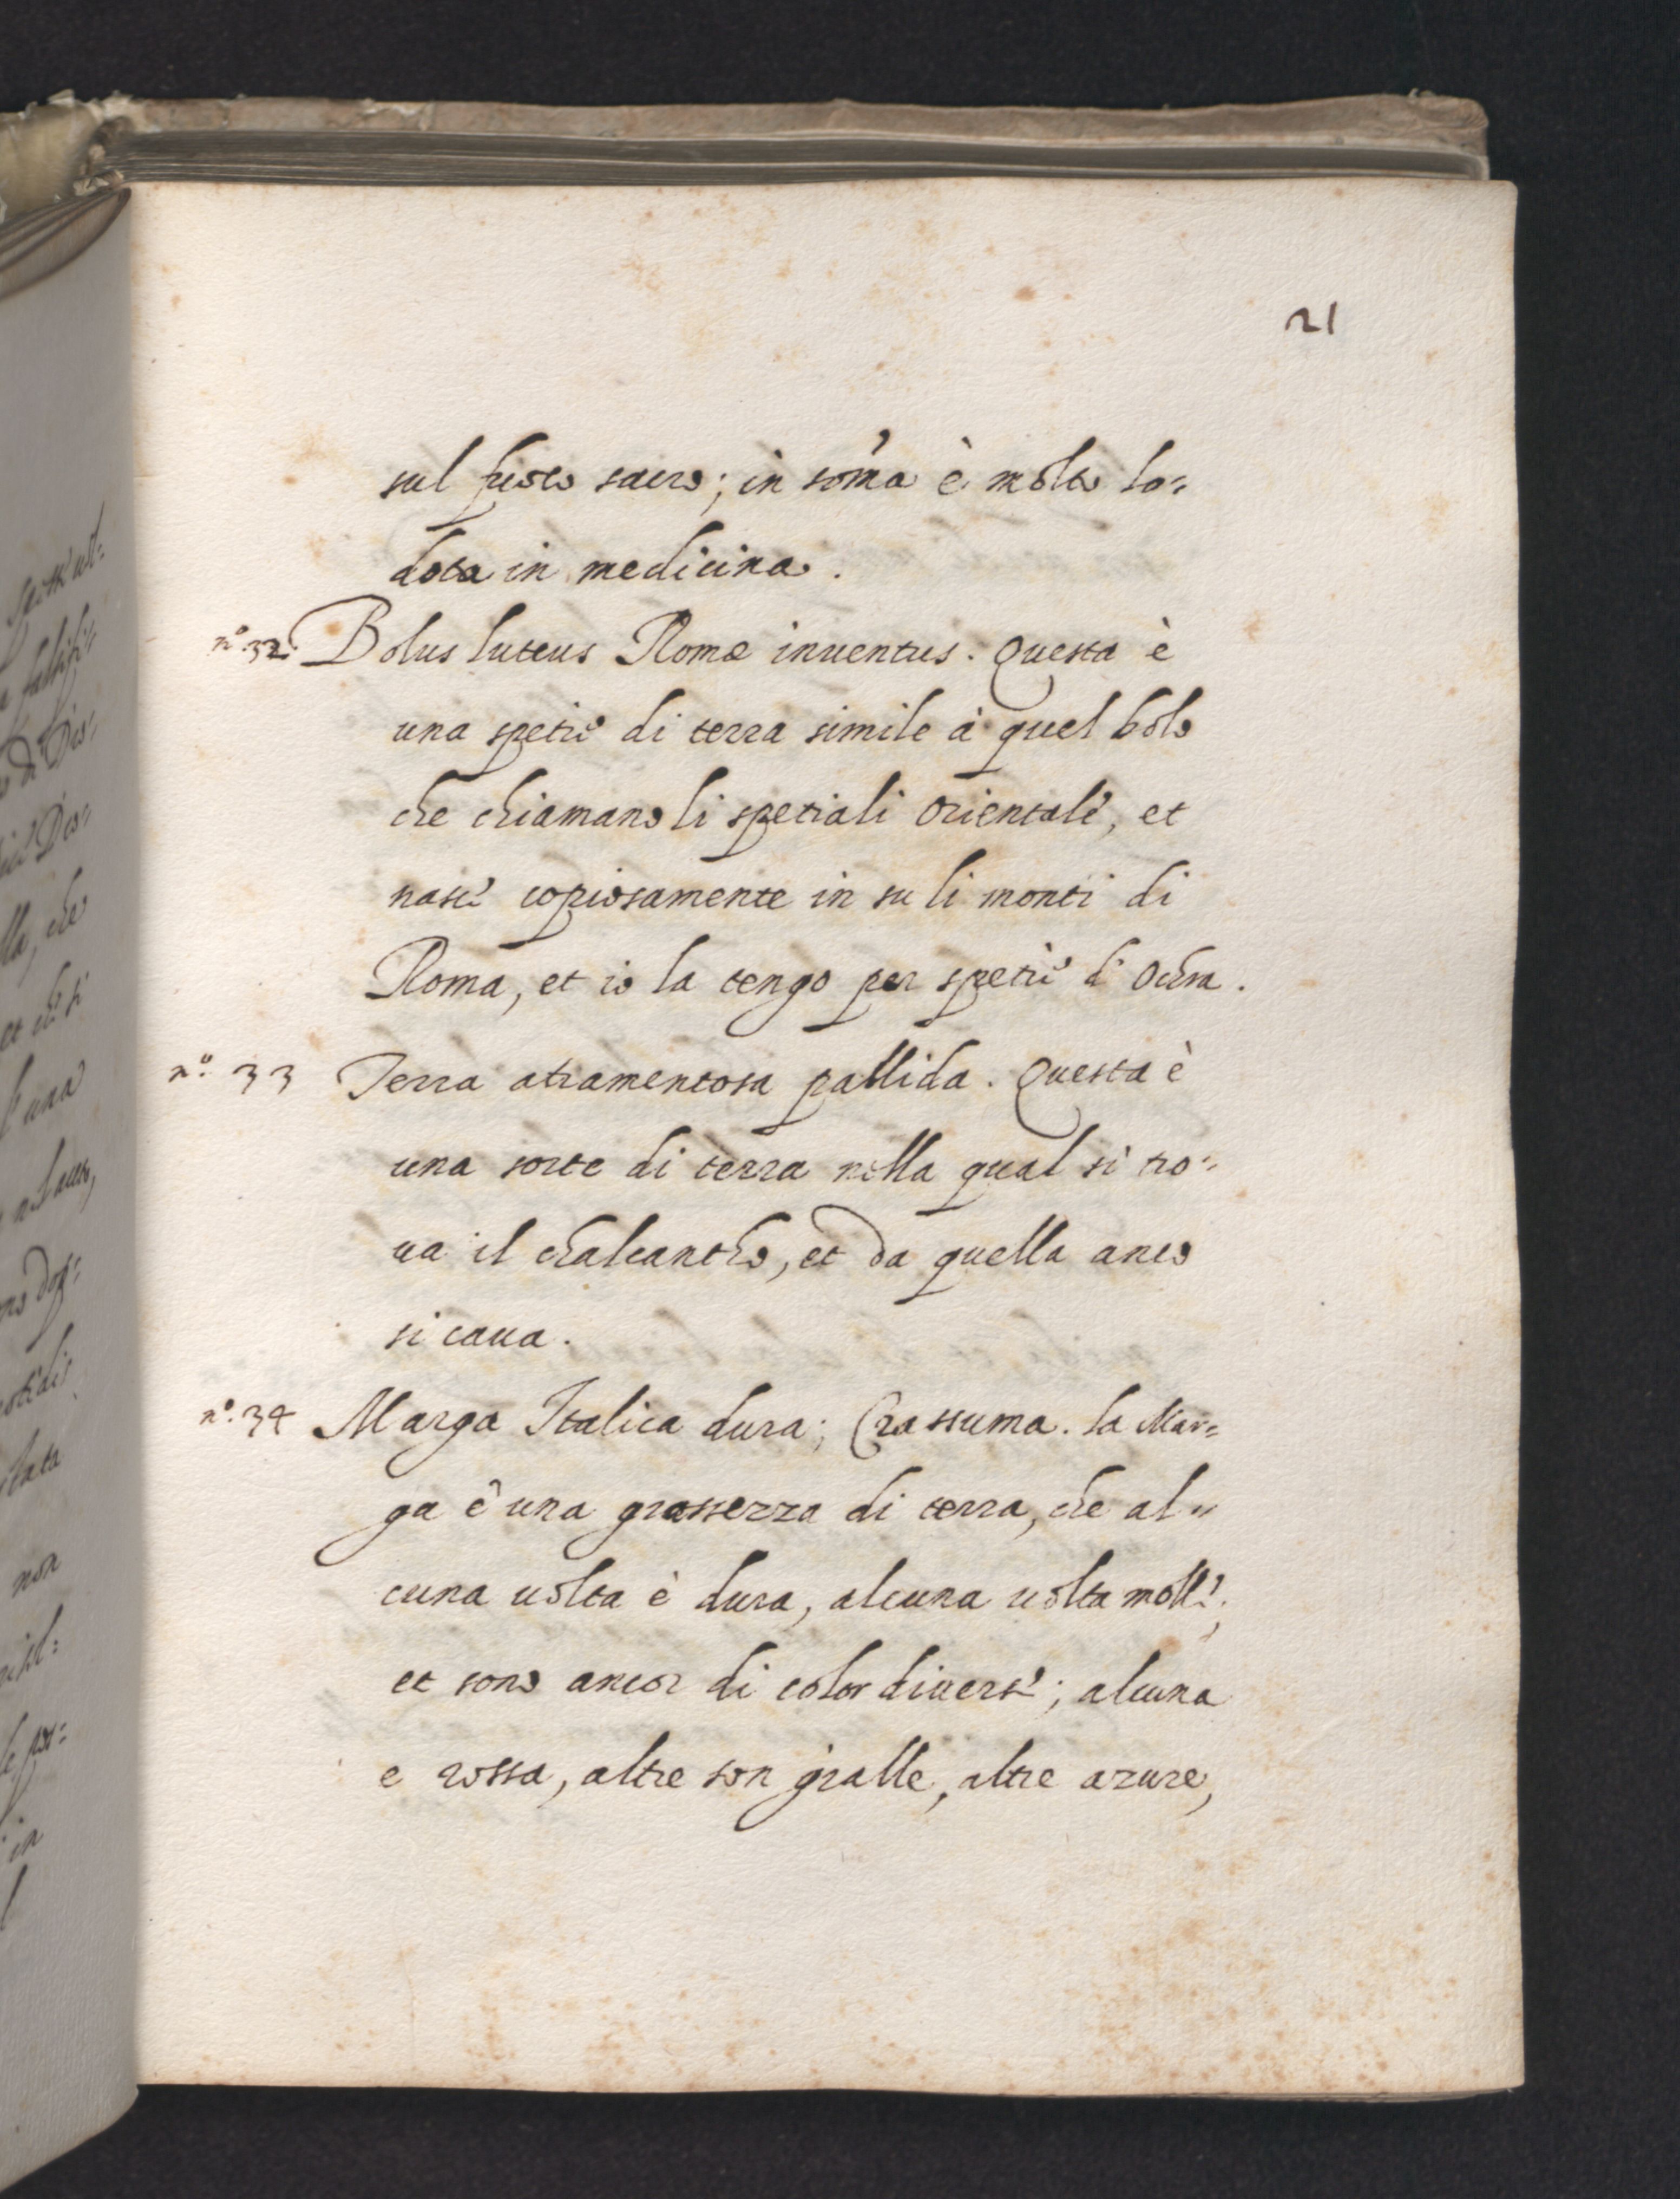 21
sul fuoco sacro; in som̃a è molto lo-
data in medicina.
n.º 32. Bolus luteus Romæ inuentus. Questa è
una spetie di terra simile à quel bolo
che chiamano li spetiali orientale, et
nasce copiosamente in su li monti di
Roma, et io la tengo per spetie d'ochra.
n.º 33 Terra atramentosa pallida. Questa è
una sorte di terra nella qual si tro-
ua il chalcantho, et da quella anco
si caua.
n.º 34 Marga Italica dura; Crassuma. la Mar-
ga è una grassezza di terra, che al-
cuna uolta è dura, alcuna uolta molle;
et sono ancor di color diuerse; alcuna
e rossa, altre son gialle, altre azure,